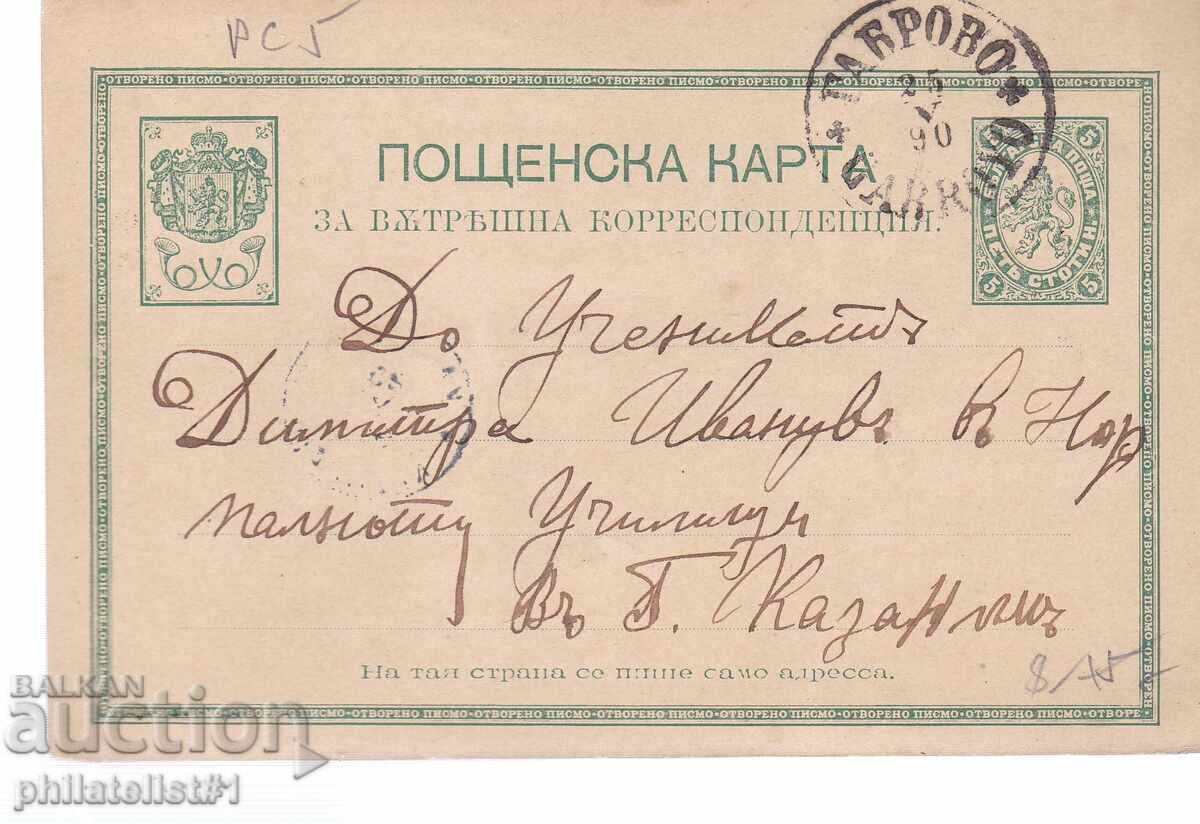 РС5
ОТВОРЕНО ПИСМО · ОТВОРЕНО ПИСМО · ОТВОРЕНО ПИСМО · ОТВОРЕНО ПИСМО · ОТВОРЕНО ПИСМО
ГАБРОВО
25
V
90
ПОЩЕНСКА КАРТА
ЗА ВѪТРѢШНА КОРРЕСПОНДЕНЦИЯ.
5 5
ПЕТЬ СТОТИНКИ
5 5
До Ученикотъ
Димитра Ивановъ въ Нор
малното Училище
Въ Г. Казанлыкъ
На тая страна се пише само адресса.
BALKAN
auction
philatelist#1